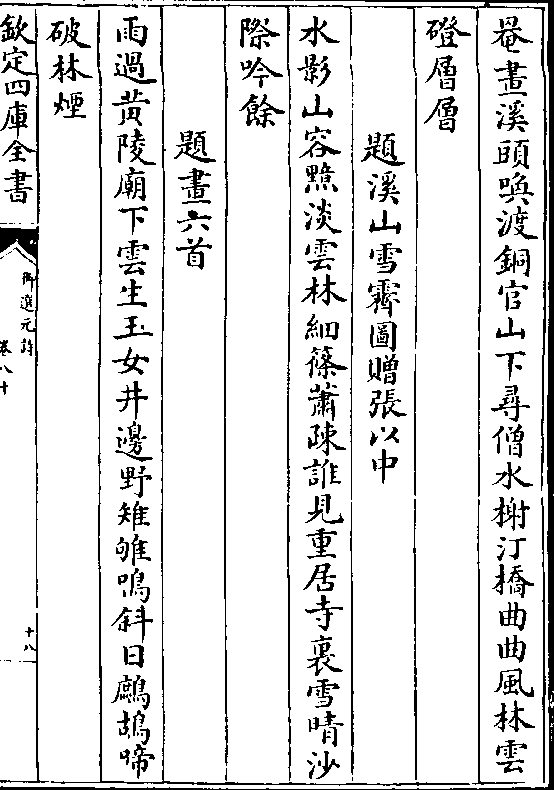 罨畫溪頭喚渡銅官山下尋僧水榭汀橋曲曲風林雲
磴層層
題溪山雪霽圖贈張以中
水影山容黯淡雲林細篠蕭疎誰見重居寺裏雪晴沙
際吟餘
題畫六首
雨過黄陵廟下雲生玉女井邊野雉雊鳴斜日鷓鴣啼
破林煙
欽定四庫全書
御選元詩
卷八十
十八